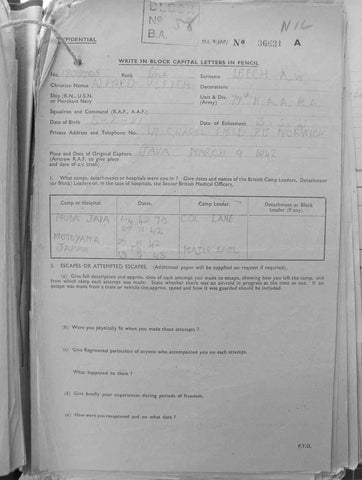 BLOCK
NO 58
B.A.
NIL
CONFIDENTIAL
M.I. 9/JAP/ No 36631 A
WRITE IN BLOCK CAPITAL LETTERS IN PENCIL
No. Rank Gnr Surname LEECH A.W.
Christian Names ALFRED Decorations
Ship (R.N., U.S.N. or Merchant Navy) Unit & Div. (Army) 77th H.A.A. R.A.
Squadron and Command (R.A.F., A.A.F.)
Date of Birth Date of Enlistment
Private Address and Telephone No. 69 CHAPEL FIELD RD NORWICH
Place and Date of Original Capture JAVA MARCH 9 1942
(Aircrew R.A.F. to give place
and date of a/c crash).
1. What camps, detachments or hospitals were you in? Give dates and names of the British Camp Leaders, Detachment
(or Block) Leaders or, in the case of hospitals, the Senior British Medical Officers.
Camp or Hospital. Dates. Camp Leader. Detachment or Block Leader (if any).
PRIOK JAVA 42 TO COL LANE
42
MOTOYAMA 42
JAPAN 45 MAJOR
2. ESCAPES OR ATTEMPTED ESCAPES. (Additional paper will be supplied on request if required).
(a) Give full description and approx. date of each attempt you made to escape, showing how you left the camp, and
from which camp each attempt was made. State whether there was an air-raid in progress at the time or not. If an
escape was made from a train or vehicle the approx. speed and how it was guarded should be included.
(b) Were you physically fit when you made these attempts?
(c) Give Regimental particulars of anyone who accompanied you on each attempt.
What happened to them?
(d) Give briefly your experiences during periods of freedom.
(e) How were you recaptured and on what date?
P.T.O.